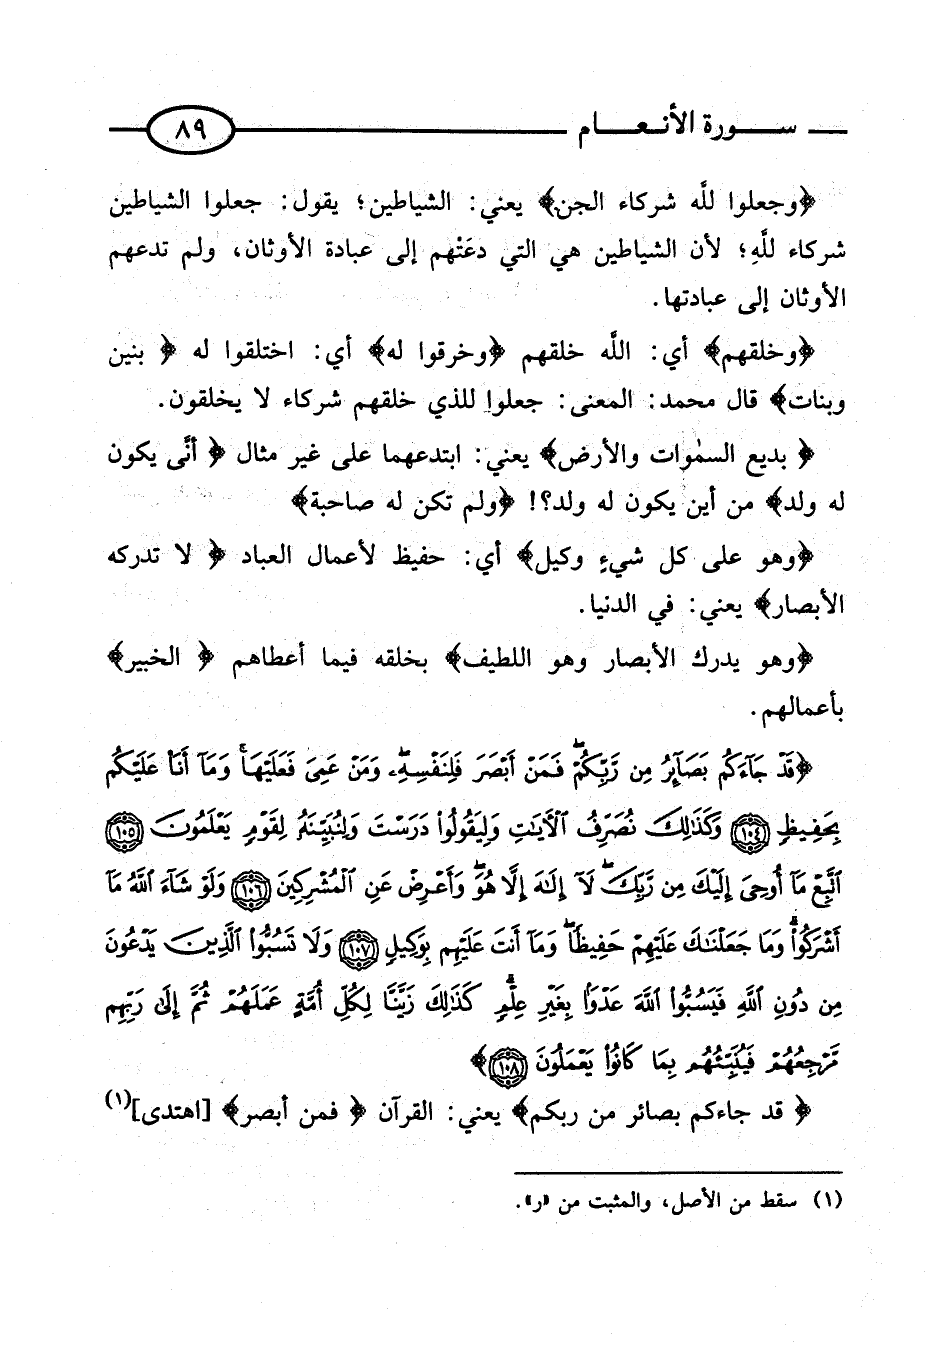 سورة الأنعام ٨٩
﴿وجعلوا للَّه شركاء الجن﴾ يعني: الشياطين؛ يقول: جعلوا الشياطين
شركاء للَّهِ؛ لأن الشياطين هي التي دعَتْهم إلى عبادة الأوثان، ولم تدعهم
الأوثان إلى عبادتها.
﴿وخلقهم﴾ أي: اللَّه خلقهم ﴿وخرقوا له﴾ أي: اختلقوا له ﴿ بنين
وبنات﴾ قال محمد: المعنى: جعلوا للذي خلقهم شركاء لا يخلقون.
﴿ بديع السمٰوات والأرض﴾ يعني: ابتدعهما على غير مثال ﴿ أنَّى يكون
له ولد﴾ من أين يكون له ولد؟! ﴿ولم تكن له صاحبة﴾
﴿وهو على كل شيءٍ وكيل﴾ أي: حفيظ لأعمال العباد ﴿ لا تدركه
الأبصار﴾ يعني: في الدنيا.
﴿وهو يدرك الأبصار وهو اللطيف﴾ بخلقه فيما أعطاهم ﴿ الخبير﴾
بأعمالهم.
﴿قَدْ جَآءَكُم بَصَآئِرُ مِن رَّبِّكُمْ ۖ فَمَنْ أَبْصَرَ فَلِنَفْسِهِۦ ۖ وَمَنْ عَمِىَ فَعَلَيْهَا ۚ وَمَآ أَنَا۠ عَلَيْكُم
بِحَفِيظٍ ١٠٤ وَكَذَٰلِكَ نُصَرِّفُ ٱلْءَايَٰتِ وَلِيَقُولُوا۟ دَرَسْتَ وَلِنُبَيِّنَهُۥ لِقَوْمٍ يَعْلَمُونَ ١٠٥
ٱتَّبِعْ مَآ أُوحِىَ إِلَيْكَ مِن رَّبِّكَ ۖ لَآ إِلَٰهَ إِلَّا هُوَ ۖ وَأَعْرِضْ عَنِ ٱلْمُشْرِكِينَ ١٠٦ وَلَوْ شَآءَ ٱللَّهُ مَآ
أَشْرَكُوا۟ ۗ وَمَا جَعَلْنَٰكَ عَلَيْهِمْ حَفِيظًا ۖ وَمَآ أَنتَ عَلَيْهِم بِوَكِيلٍ ١٠٧ وَلَا تَسُبُّوا۟ ٱلَّذِينَ يَدْعُونَ
مِن دُونِ ٱللَّهِ فَيَسُبُّوا۟ ٱللَّهَ عَدْوًۢا بِغَيْرِ عِلْمٍ ۗ كَذَٰلِكَ زَيَّنَّا لِكُلِّ أُمَّةٍ عَمَلَهُمْ ثُمَّ إِلَىٰ رَبِّهِم
مَّرْجِعُهُمْ فَيُنَبِّئُهُم بِمَا كَانُوا۟ يَعْمَلُونَ ١٠٨﴾
﴿ قد جاءكم بصائر من ربكم﴾ يعني: القرآن ﴿ فمن أبصر﴾ [اهتدى](١)
(١) سقط من الأصل، والمثبت من «ر».